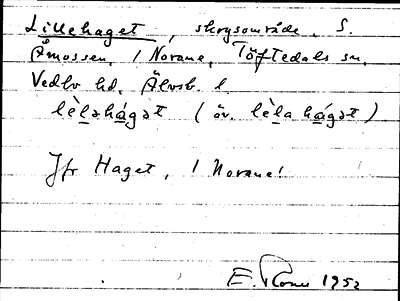 Lillehaget, skogsområde, S.
Åmossen, 1 Norane, Töftedals sn,
Vedbo hd, Älvsb. l.
lèləhágət (äv. lèla hágət)
Jfr Haget, 1 Norane!
E. 1952